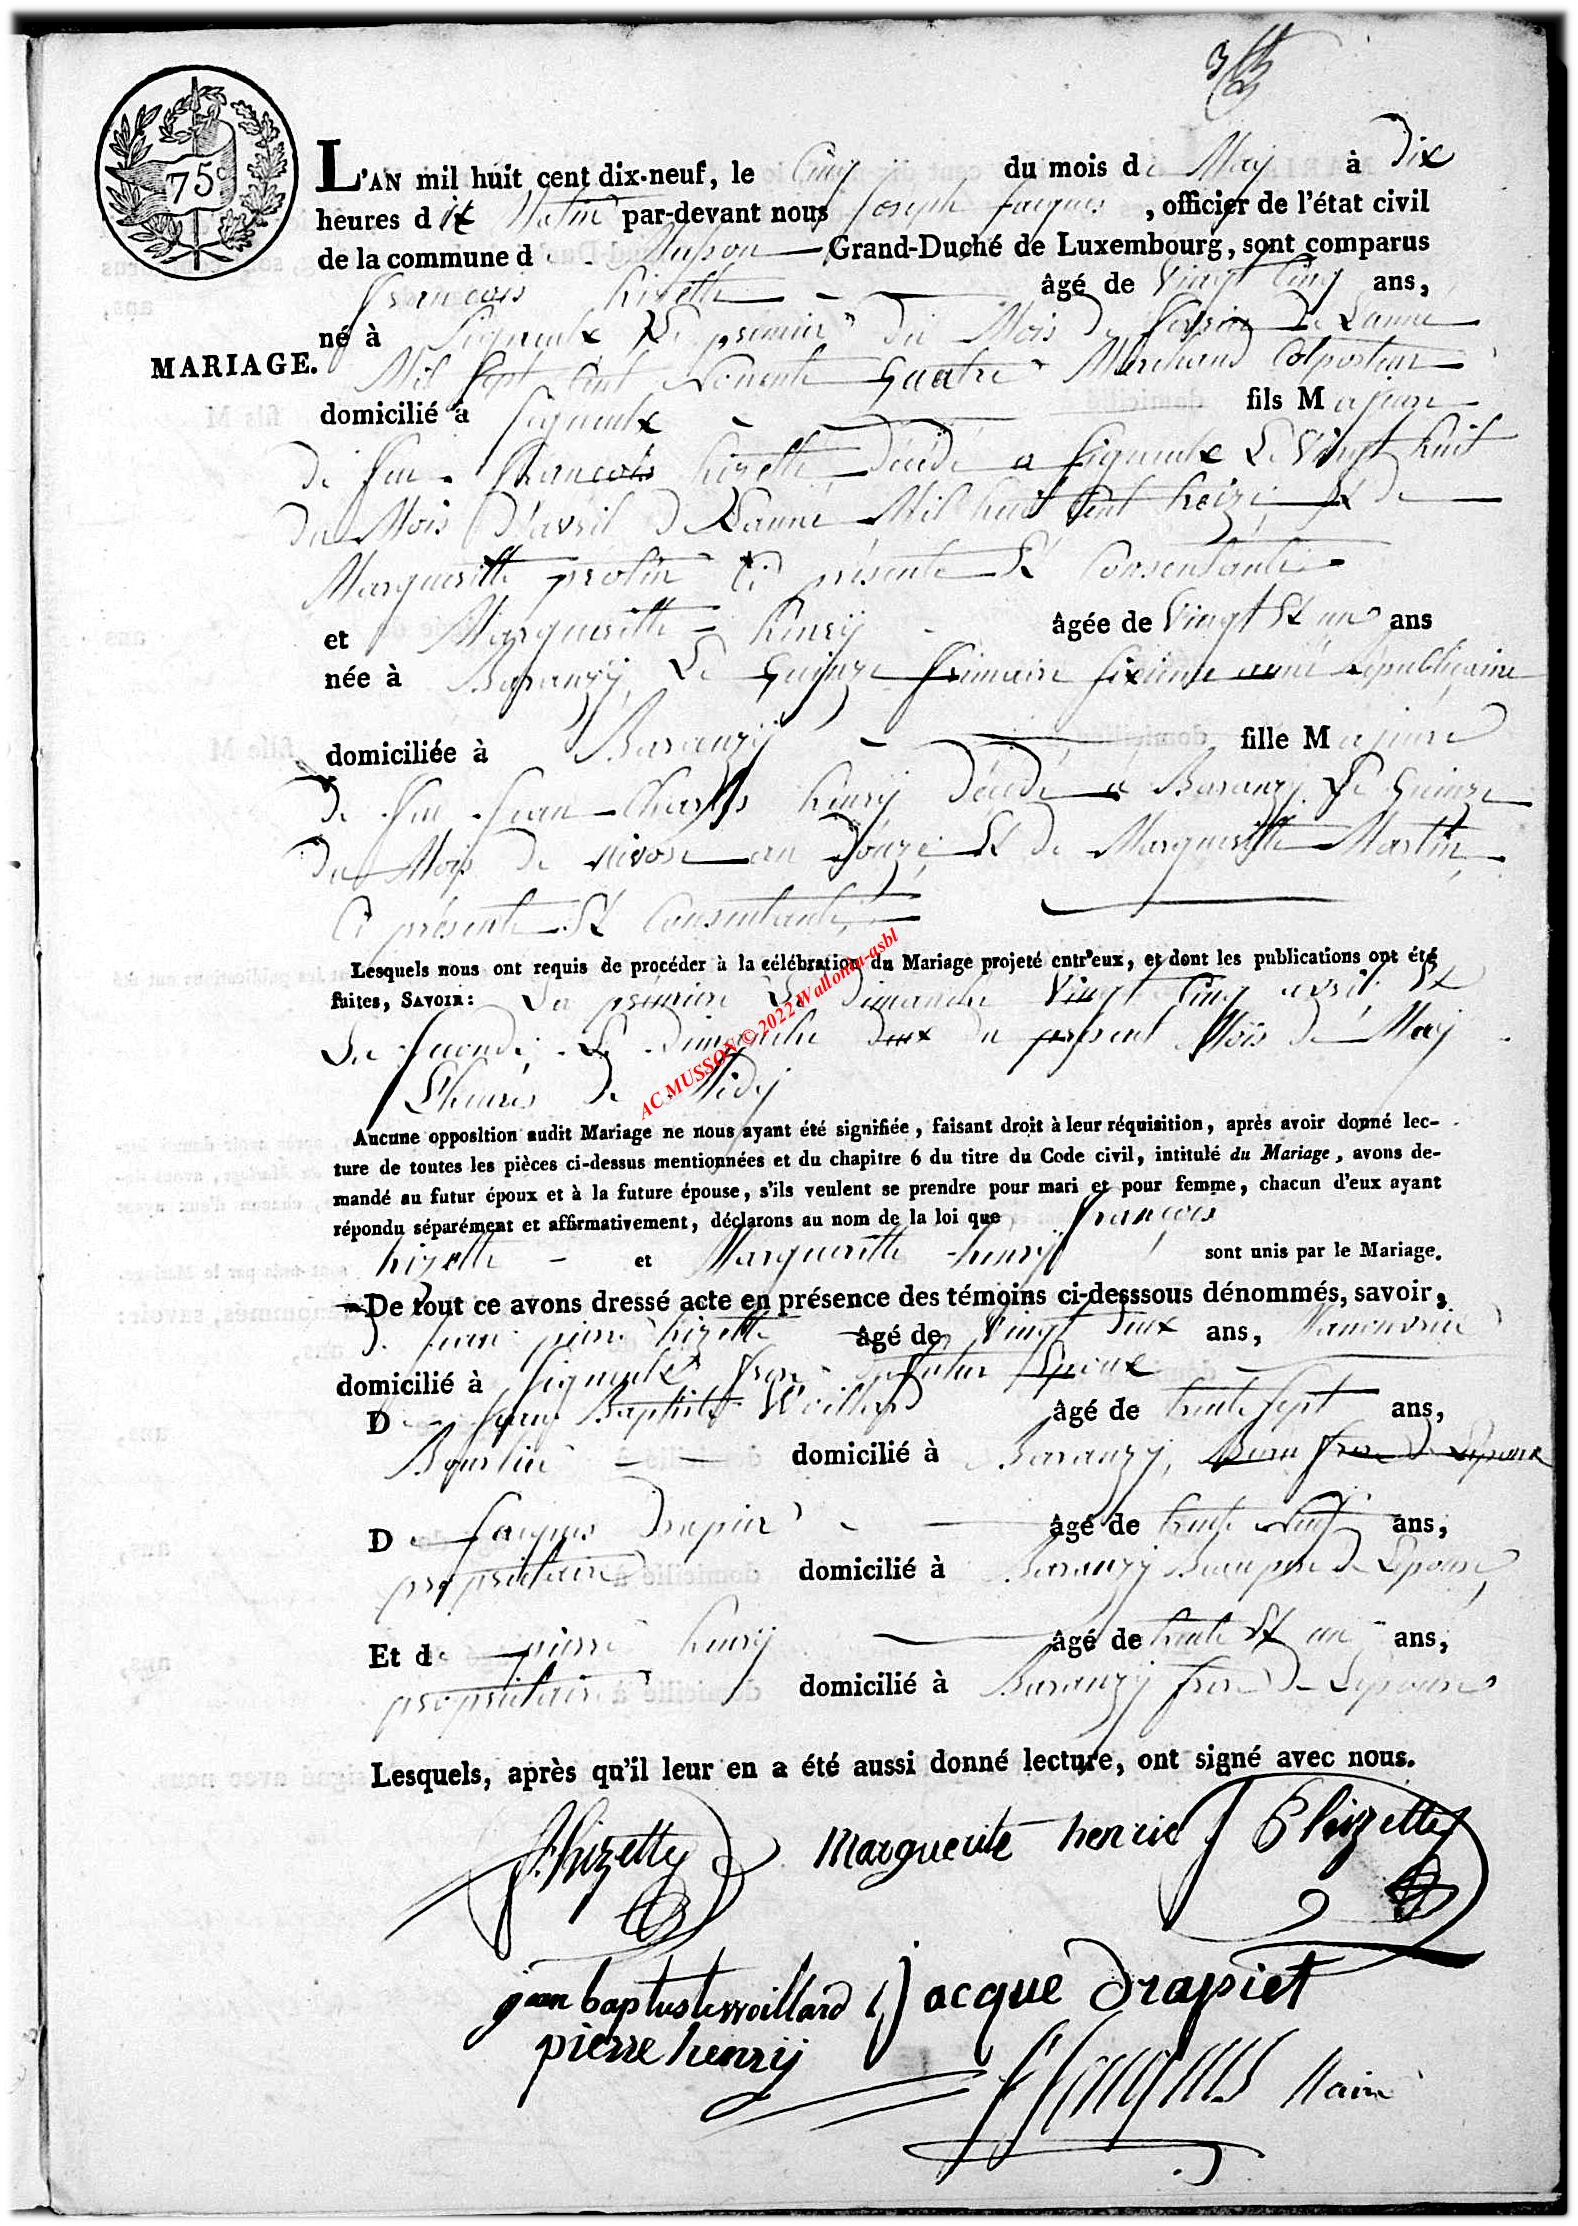 3
75c
L'AN mil huit cent dix-neuf, le Cinq du mois de May à dix
heures du Matin par-devant nous Joseph Jacques, officier de l'état civil
de la commune de Musson Grand-Duché de Luxembourg, sont comparus
francois hizette âgé de Vingt Cinq ans,
né à Signeulx Le premier du Mois de fevrier de Lanné
MARIAGE.
Mil Sept Cent Nonente quatre Marchand Colporteur
domicilié à Signeulx fils Majeur
de feu francois hizette décédé a Signeulx Le Vingt huit
du Mois d'avril de Lanné Mil huit Cent treize Et de
Margueritte protin Ci présente Et Consentante
et Margueritte henrÿ âgée de Vingt Et un ans
née à Baranzÿ Le quinze frimaire sixieme anné Republicaine
domiciliée à Baranzÿ fille Majeure
de feu Jean Charles henrÿ décédé a Baranzÿ Le quinze
du Mois de nivose an douze Et de Margueritte Martin
Ci présente Et Consentante
Lesquels nous ont requis de procéder à la célébration du Mariage projeté entr'eux, et dont les publications ont été
faites, SAVOIR: La premiere Le dimanche Vingt Cinq avril Et
La seconde Le dimanche deux du present Mois de May
à Lheures de Midy
Aucune opposition audit Mariage ne nous ayant été signifiée, faisant droit à leur réquisition, après avoir donné lec-
ture de toutes les pièces ci-dessus mentionnées et du chapitre 6 du titre du Code civil, intitulé du Mariage, avons de-
mandé au futur époux et à la future épouse, s'ils veulent se prendre pour mari et pour femme, chacun d'eux ayant
répondu séparément et affirmativement, déclarons au nom de la loi que françois
hizette et Margueritte henrÿ sont unis par le Mariage.
De tout ce avons dressé acte en présence des témoins ci-desssous dénommés, savoir,
de Jean pierre hizette âgé de Vingt deux ans, Manouvrier
domicilié à Signeulx frere du futur Epoux
De Jean Baptiste Woillard âgé de trente sept ans,
Bourlier domicilié à Baranzÿ, Beau frere de Lepouse
De Jacques Drapier âgé de trente neuf ans,
propriétaire domicilié à Baranzÿ Beaupere de Lepouse,
Et de pierre henrÿ âgé de trente Et un ans,
propriétaire domicilié à Baranzÿ frere de Lepouse
Lesquels, après qu'il leur en a été aussi donné lecture, ont signé avec nous.
f. hizette marguerite henrie J P hizette
jean baptiste woillard jacque drapiet
pierre henrÿ J Jacques Maire
AC MUSSON © 2022 Wallonia-asbl